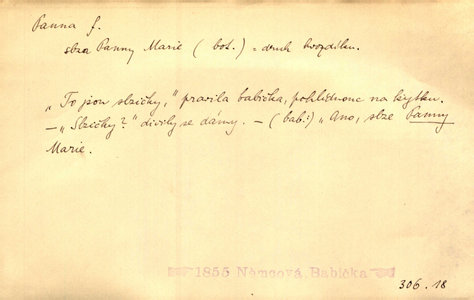 Panna f.
slza Panny Marie ( bot. ) = druh hvozdíku.
„To jsou slzičky," pravila babička, pohlédnouc na kytku.
– „Slzičky?" divily se dámy. – ( bab.:) „Ano, slze Panny
Marie.
1855 Němcová, Babička
306.18